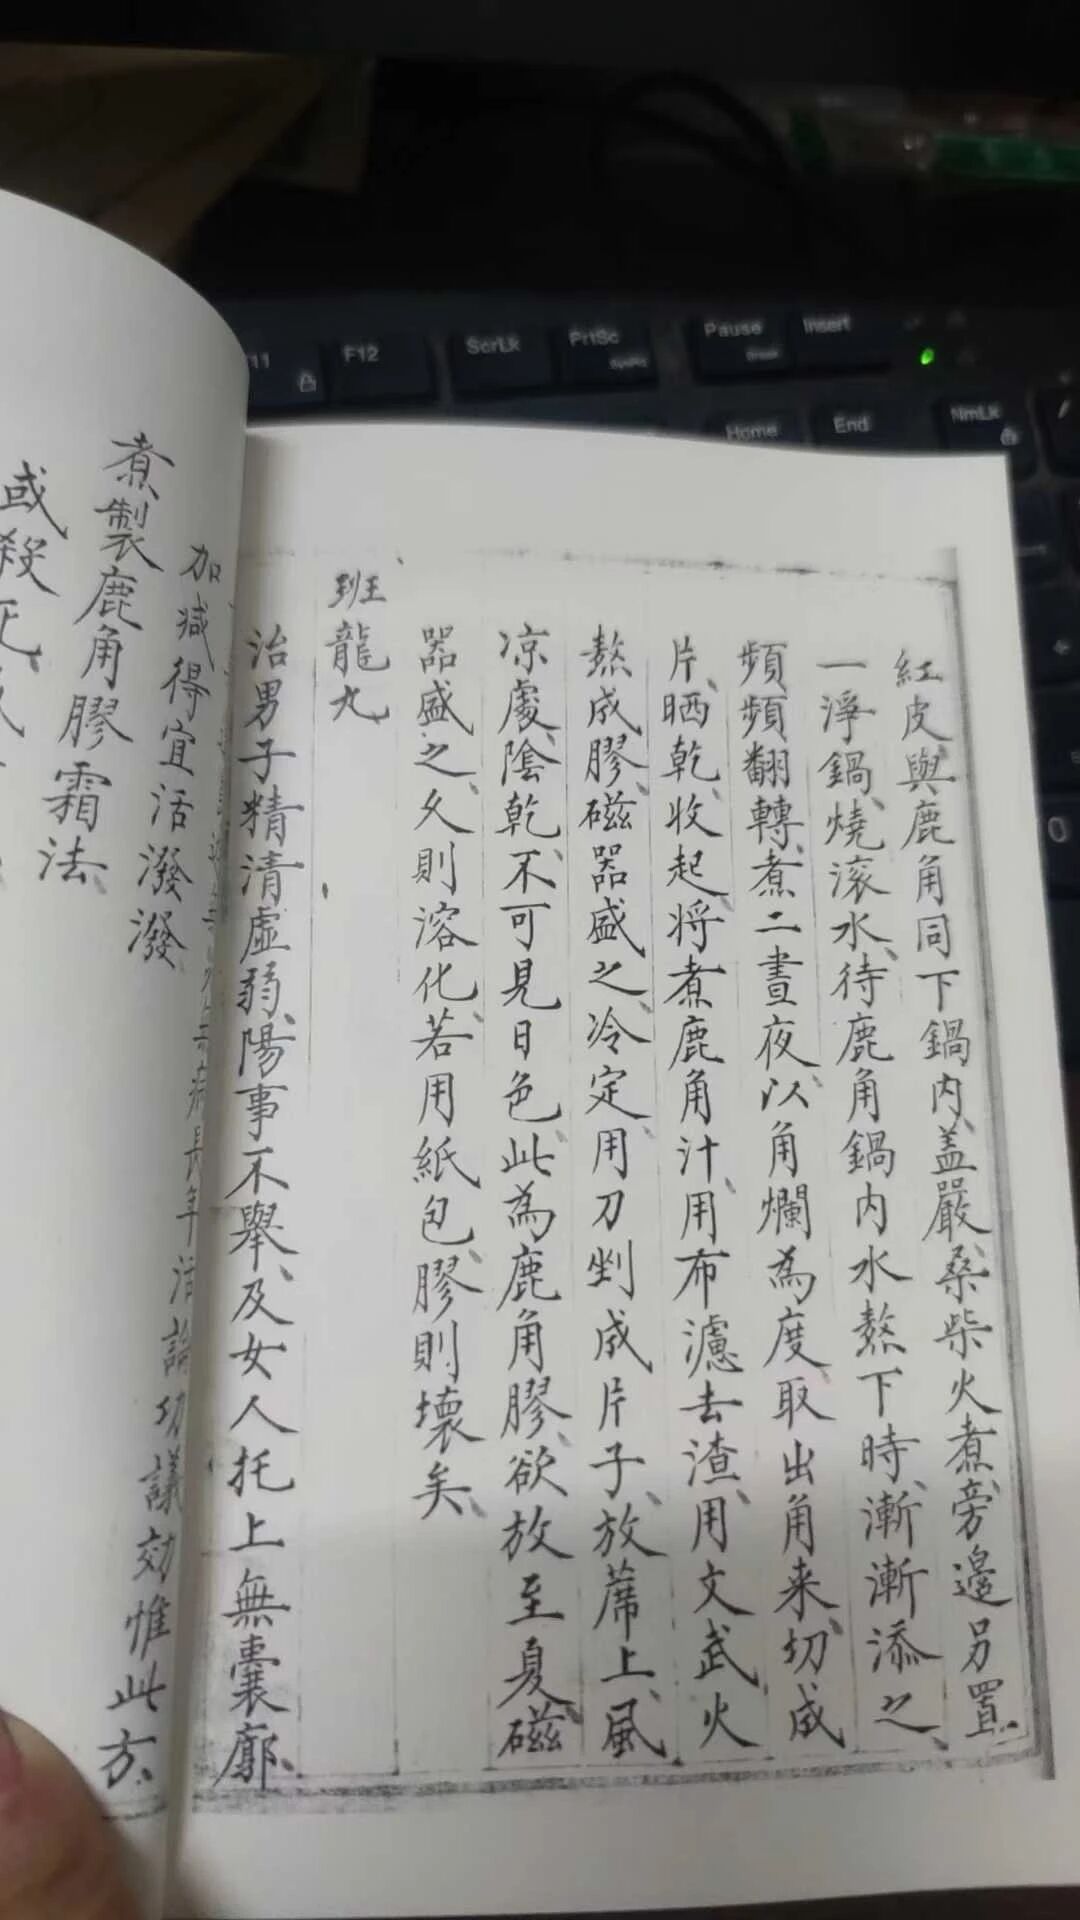 紅皮與鹿角同下鍋内、蓋嚴、桑柴火煮、旁邊另置
一淨鍋、燒滚水、待鹿角鍋内水熬下時、漸漸添之、
頻頻翻轉、煮二晝夜、以角爛為度、取出角来、切成
片、晒乾、收起、將煮鹿角汁、用布濾去渣、用文武火
熬成膠、磁器盛之、冷定、用刀剉成片子、放蓆上、風
凉處、陰乾、不可見日色、此為鹿角膠、欲放至夏、磁
器盛之、久則溶化、若用紙包、膠則壞矣、
班龍丸
治男子精清虛弱、陽事不舉、及女人托上無囊廓、
加減得宜活潑潑
功議効惟此方、
煮製鹿角膠霜法、
或殺死
F12
ScrLk
PrtSc
Pause
Break
Insert
Home
End
NmLk